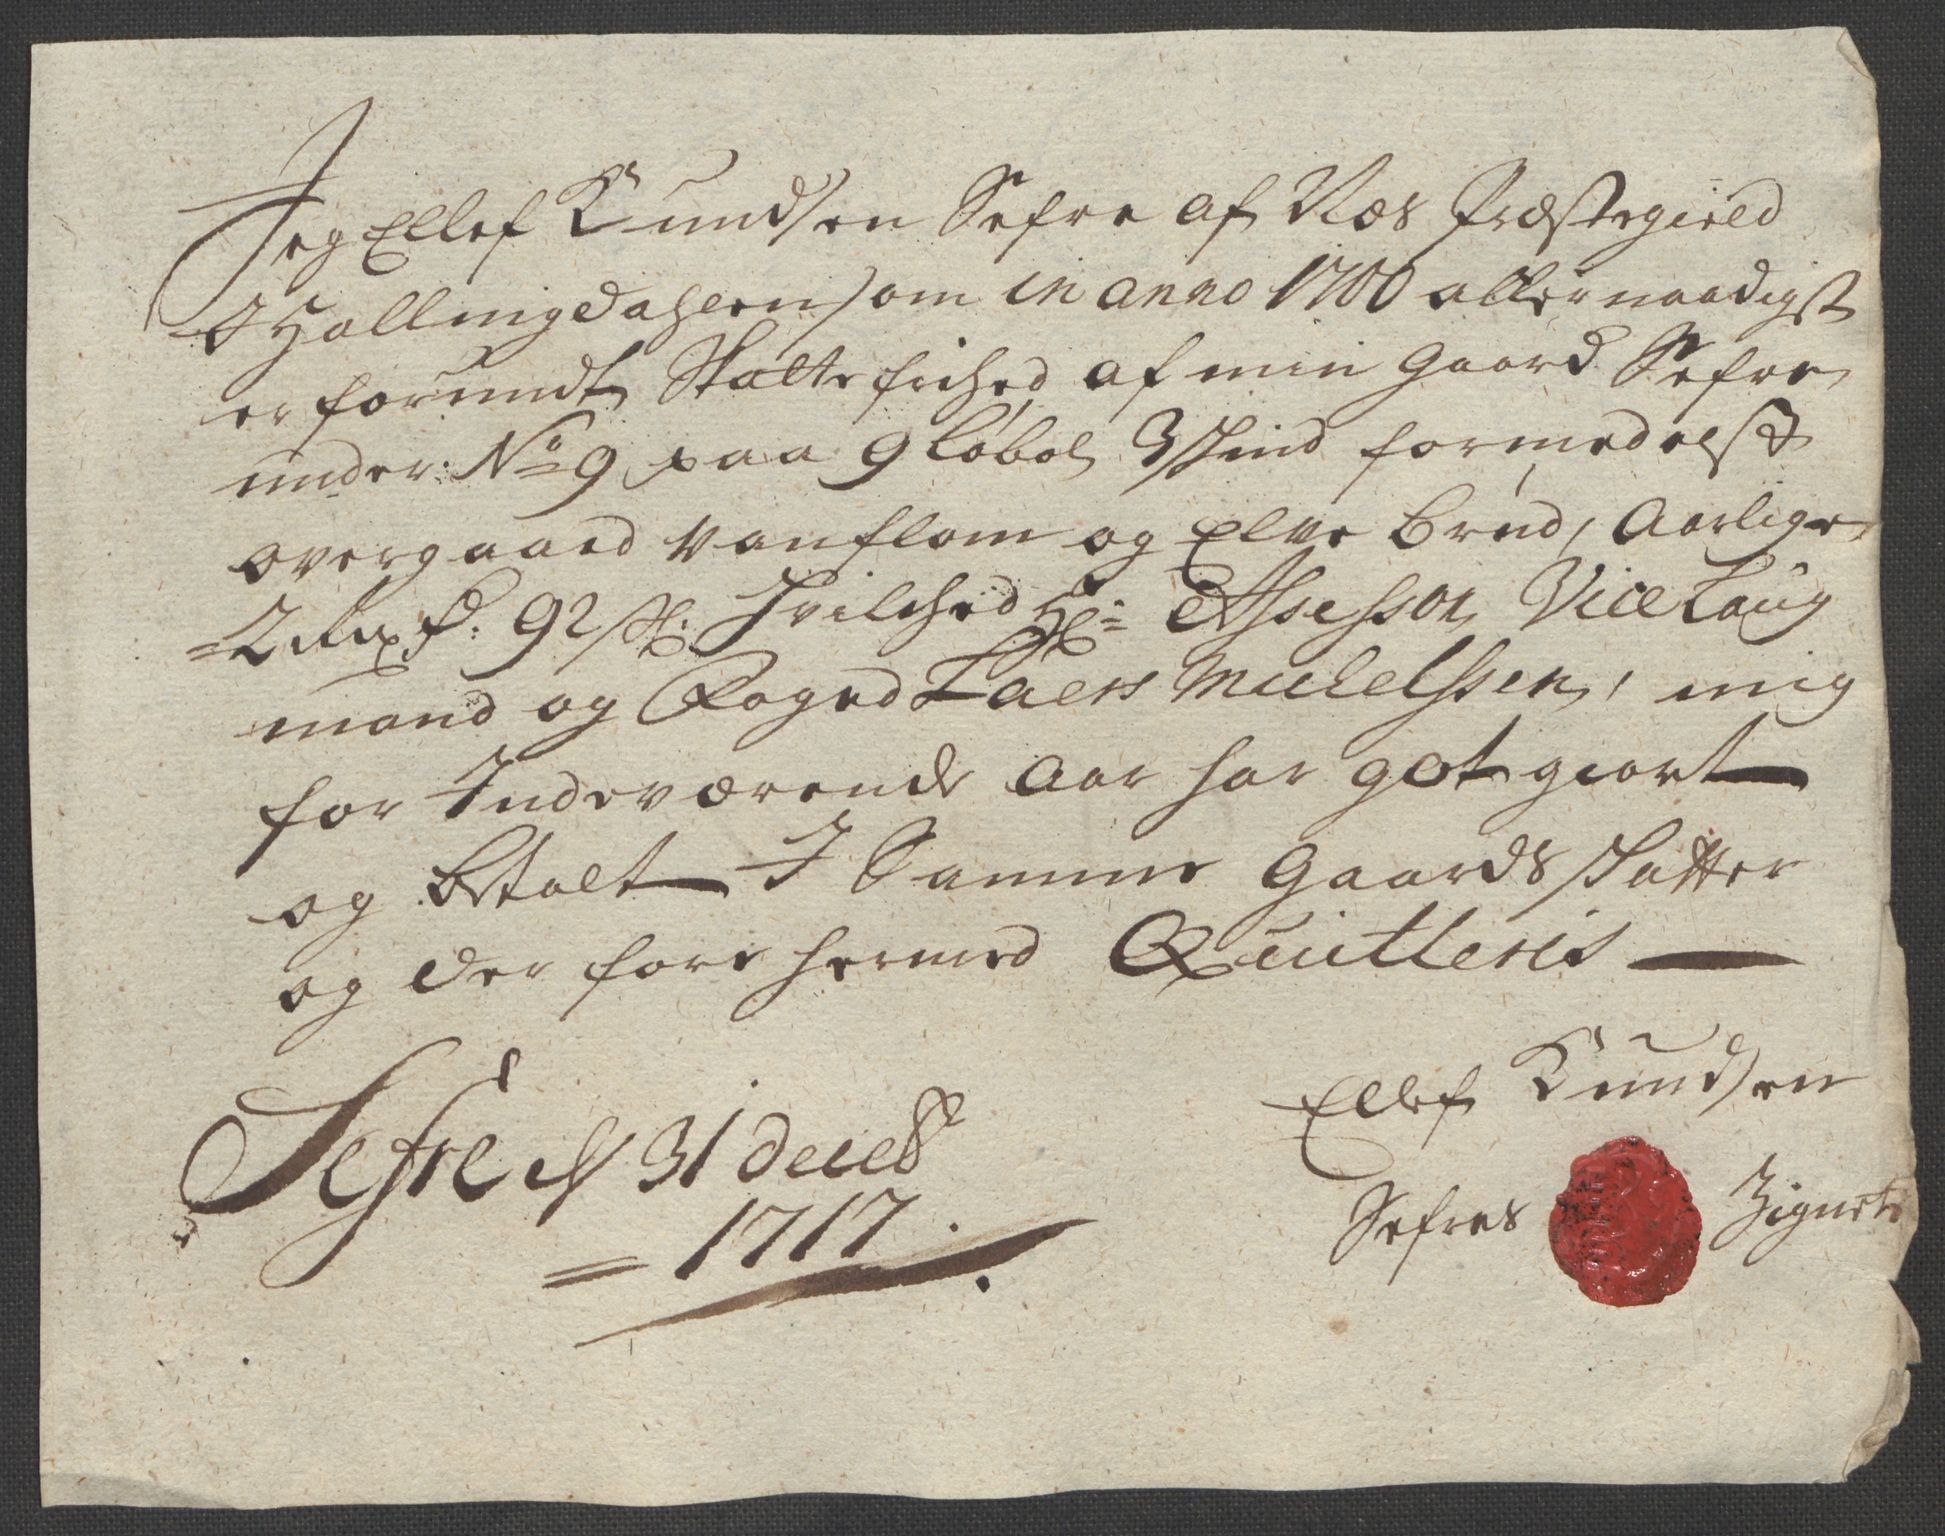 Jeg Ellef Knudsen Sefre af Næs Præstegield
I Hallingdahlen som in anno 1700 allernaadigst
er forundt Skatte frihed af min Gaard Sefre
under: No 9 paa 9 løbol 3 skind formedelst
overgaaed Vanflom og Elve brud, Aarlig
2 Rix d: 92 s: Hvilched Hr: Assessor Vice Laug
mand og Foged Laers Michelssen, mig
for Indeværende Aar har got giort
og betalt I Samme Gaards skatter
og der fore hermed Quitteris
Sefre d 31 decebr
1717
Ellef Knudsen
Sefres Zignete